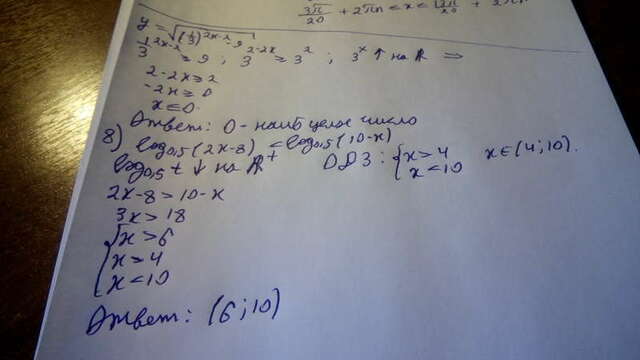 3π/20 + 2πn ≤ x ≤
y = √((1/3)^(2x-2) - 9)
1/3^(2x-2) ≥ 9 ; 3^(2-2x) ≥ 3^2 ; 3^x ↑ на R ⇒
2-2x ≥ 2
-2x ≥ 0
x ≤ 0
Ответ: 0 - наиб целое число
8) log0,5(2x-8) < log0,5(10-x)
log0,5 t ↓ на R+ ОДЗ: { x > 4 x < 10 x ∈ (4;10).
2x-8 > 10-x
3x > 18
{ x > 6
x > 4
x < 10
Ответ: (6;10)